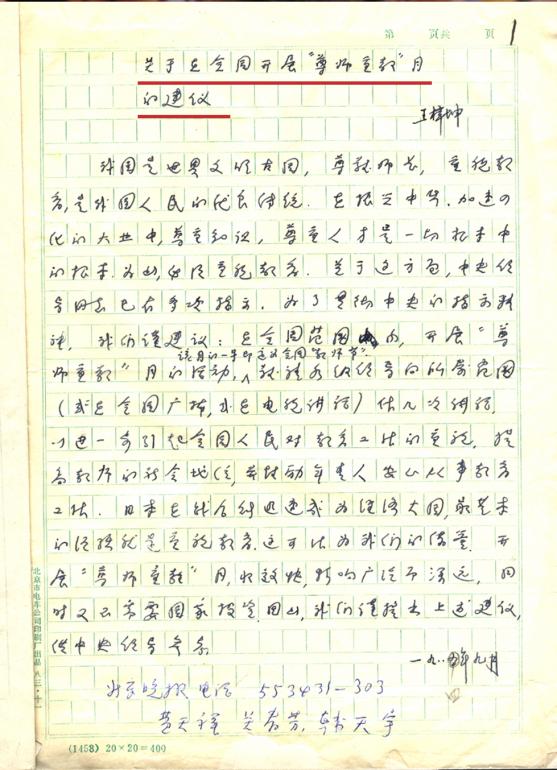 第 页共 页 1
关于在全国开展“尊师重教”月
的建议
王梓坤
我国是世界文明古国，尊敬师长，重视教
育，是我国人民的优良传统。在振兴中华，加速四
化的大业中，尊重知识，尊重人才是一切根本中
的根本，为此，必须重视教育。关于这方面，中央领
导同志已有多次指示。为了贯彻中央的指示精
神，我们谨建议：在全国范围内，开展“尊
该月的一日即定为全国“教师节”
师重教”月的活动，敬请各级领导向所属范围
（或在全国广播，或在电视讲话）作几次讲话，
以进一步引起全国人民对教育工作的重视，提
高教师的社会地位，并鼓励年青人安心从事教育
工作。日本在战后得迅速成为经济大国，最基本
的经验就是重视教育，这可作为我们的借鉴。开
展“尊师重教”月，收效快，影响广泛而深远，同
时又不需要国家投资，因此，我们谨提出上述建议，
供中央领导参考。
一九八四年九月
北京晚报 电话 553431-303
黄天祥
北京市电车公司印刷厂出品 八三·十一
(1458) 20×20=400